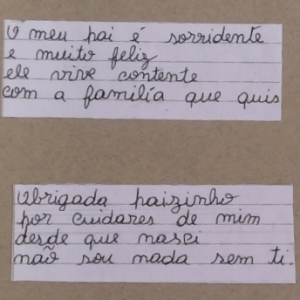 O meu pai é sorridente
e muito feliz
ele vive contente
com a família que quis
Obrigada paizinho
por cuidares de mim
desde que nasci
não sou nada sem ti.